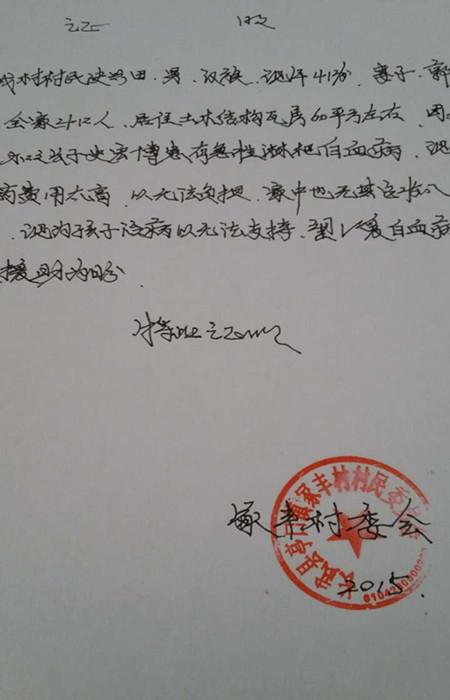 证 明
村村民史 田、男、汉族、现年41岁、妻子、郭
全家 口人、居住土木结构瓦房60平方左右、因
次子史宗博患有急性淋巴白血病、现
药费用太高、以无法负担、家中也无其它收入
、现为孩子治病以无法支持、望 白血病
援 为盼
特此证明
家丰村委会
长武县亭口镇冢丰村村民委员会
2015.